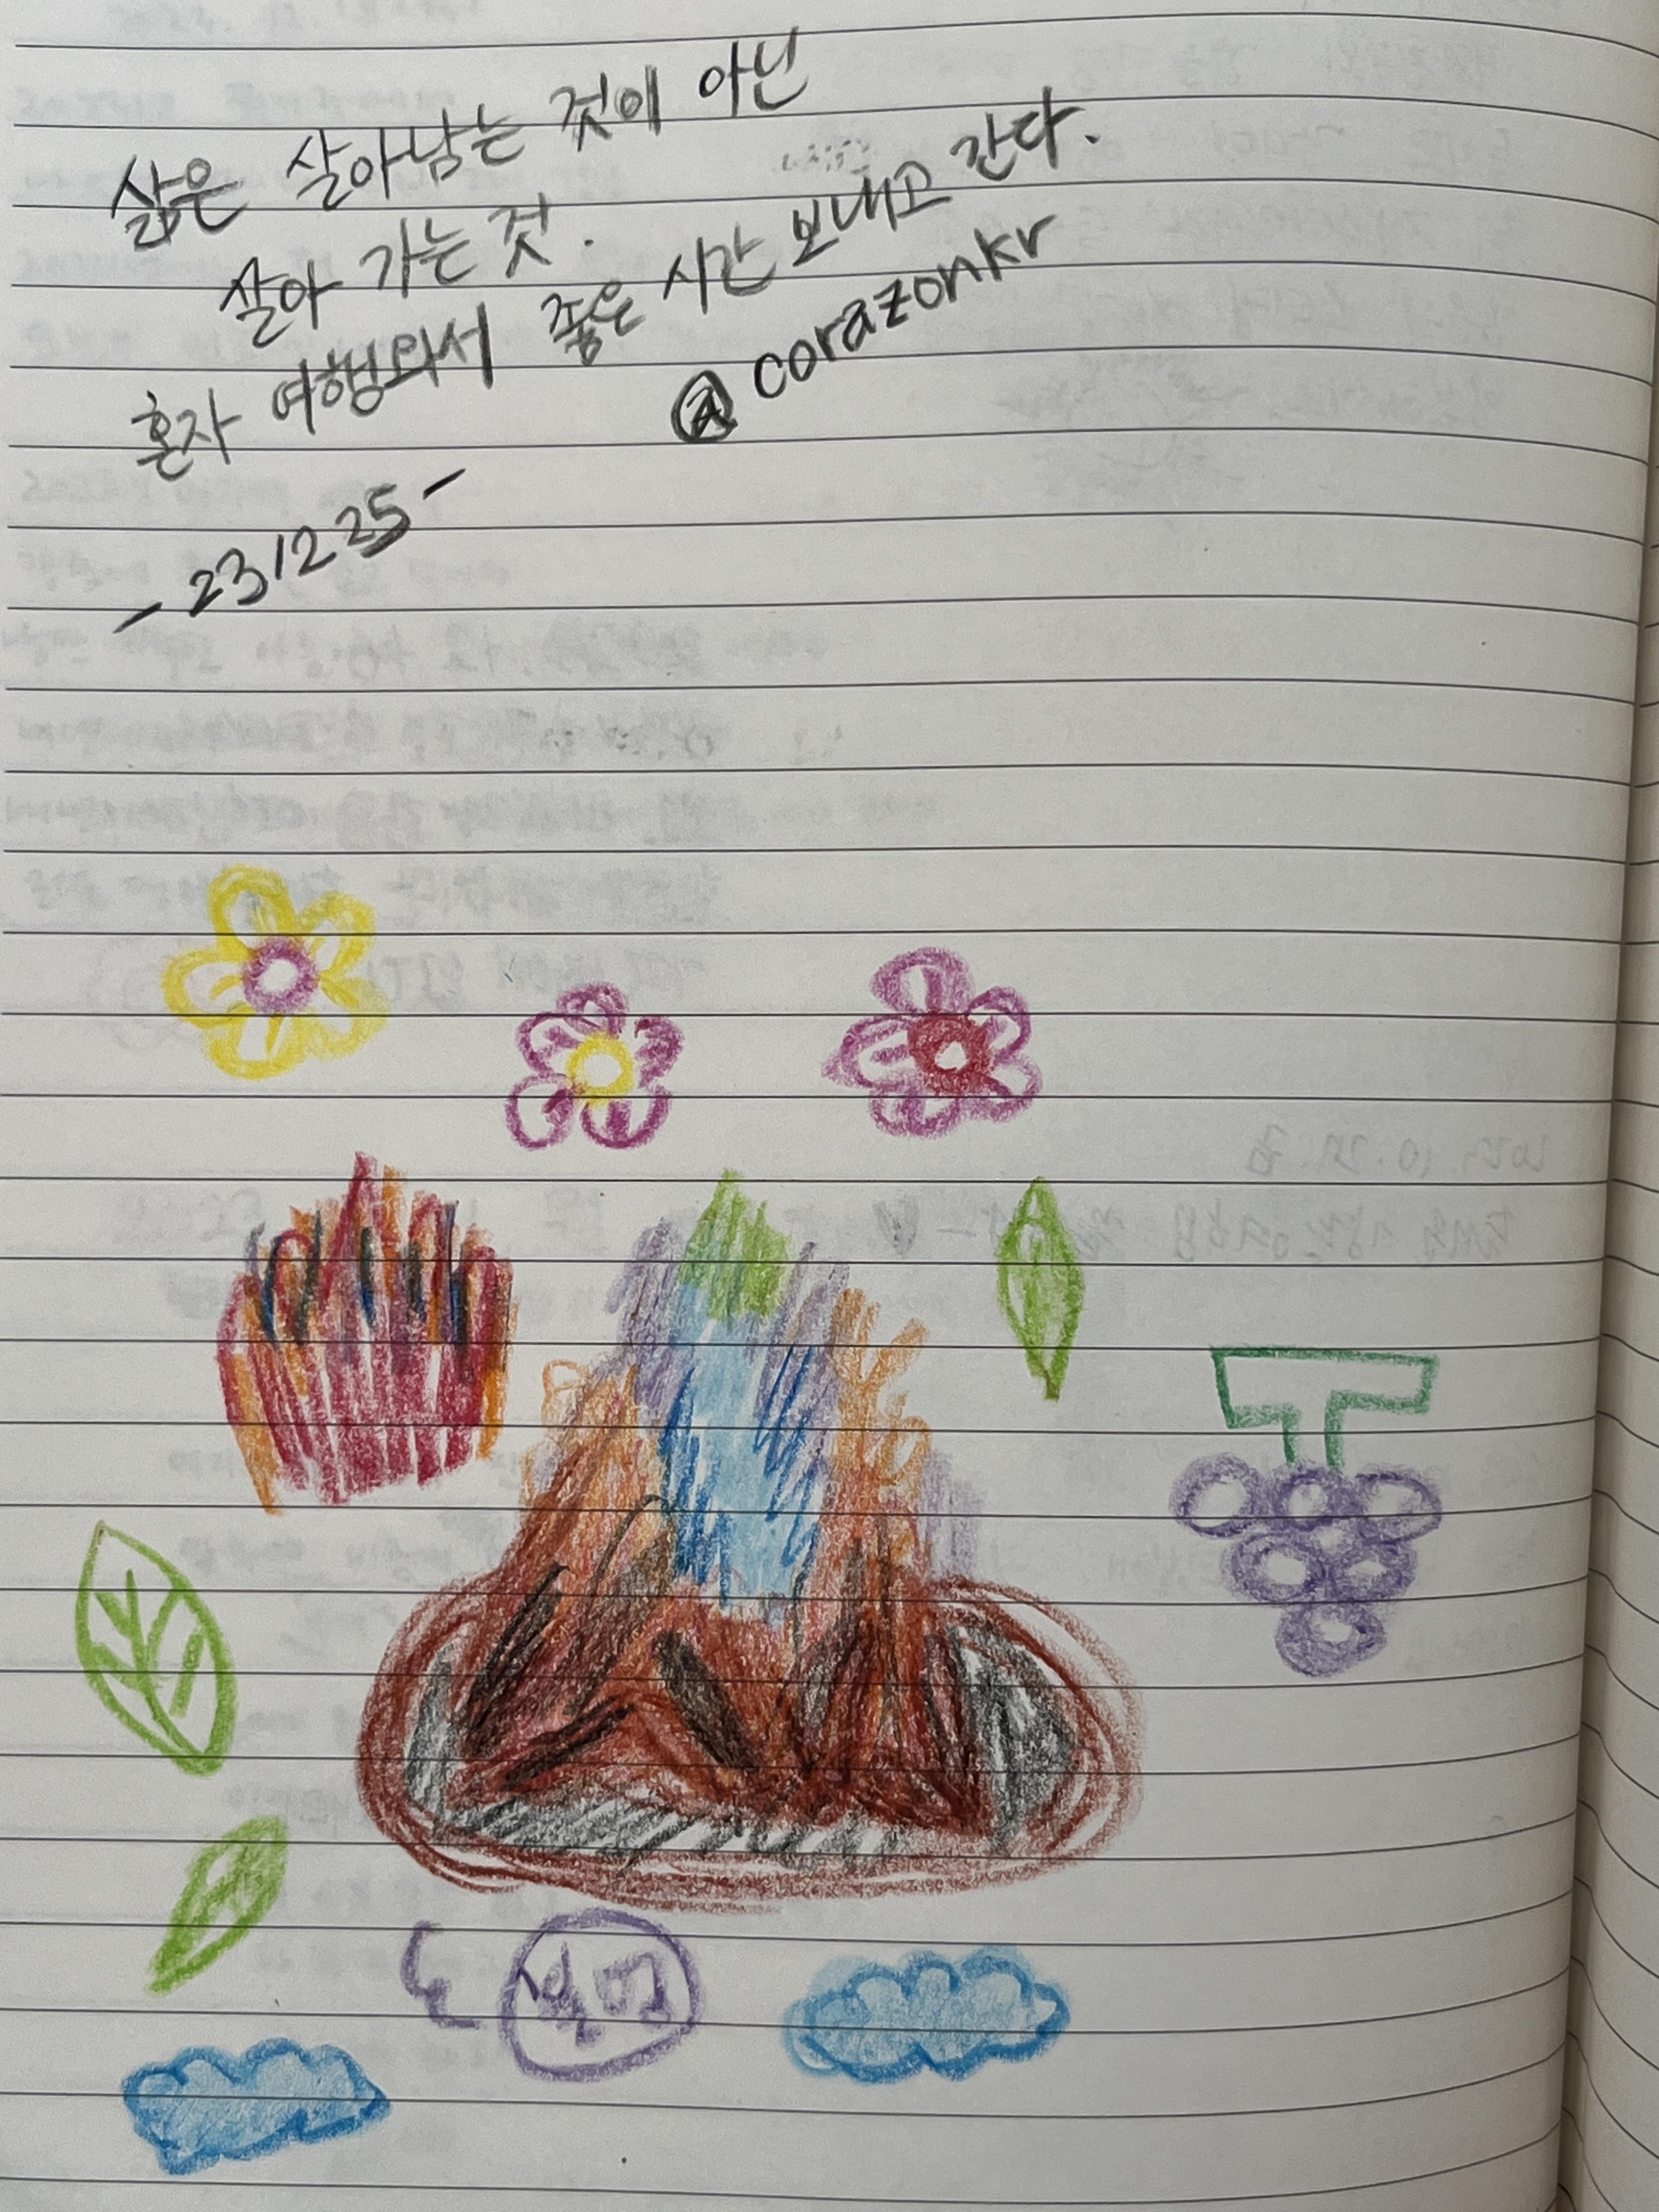 삶은 살아남는 것이 아닌
살아 가는 것.
혼자 여행와서 좋은 시간 보내고 간다.
@corazonkr
- 231225 -